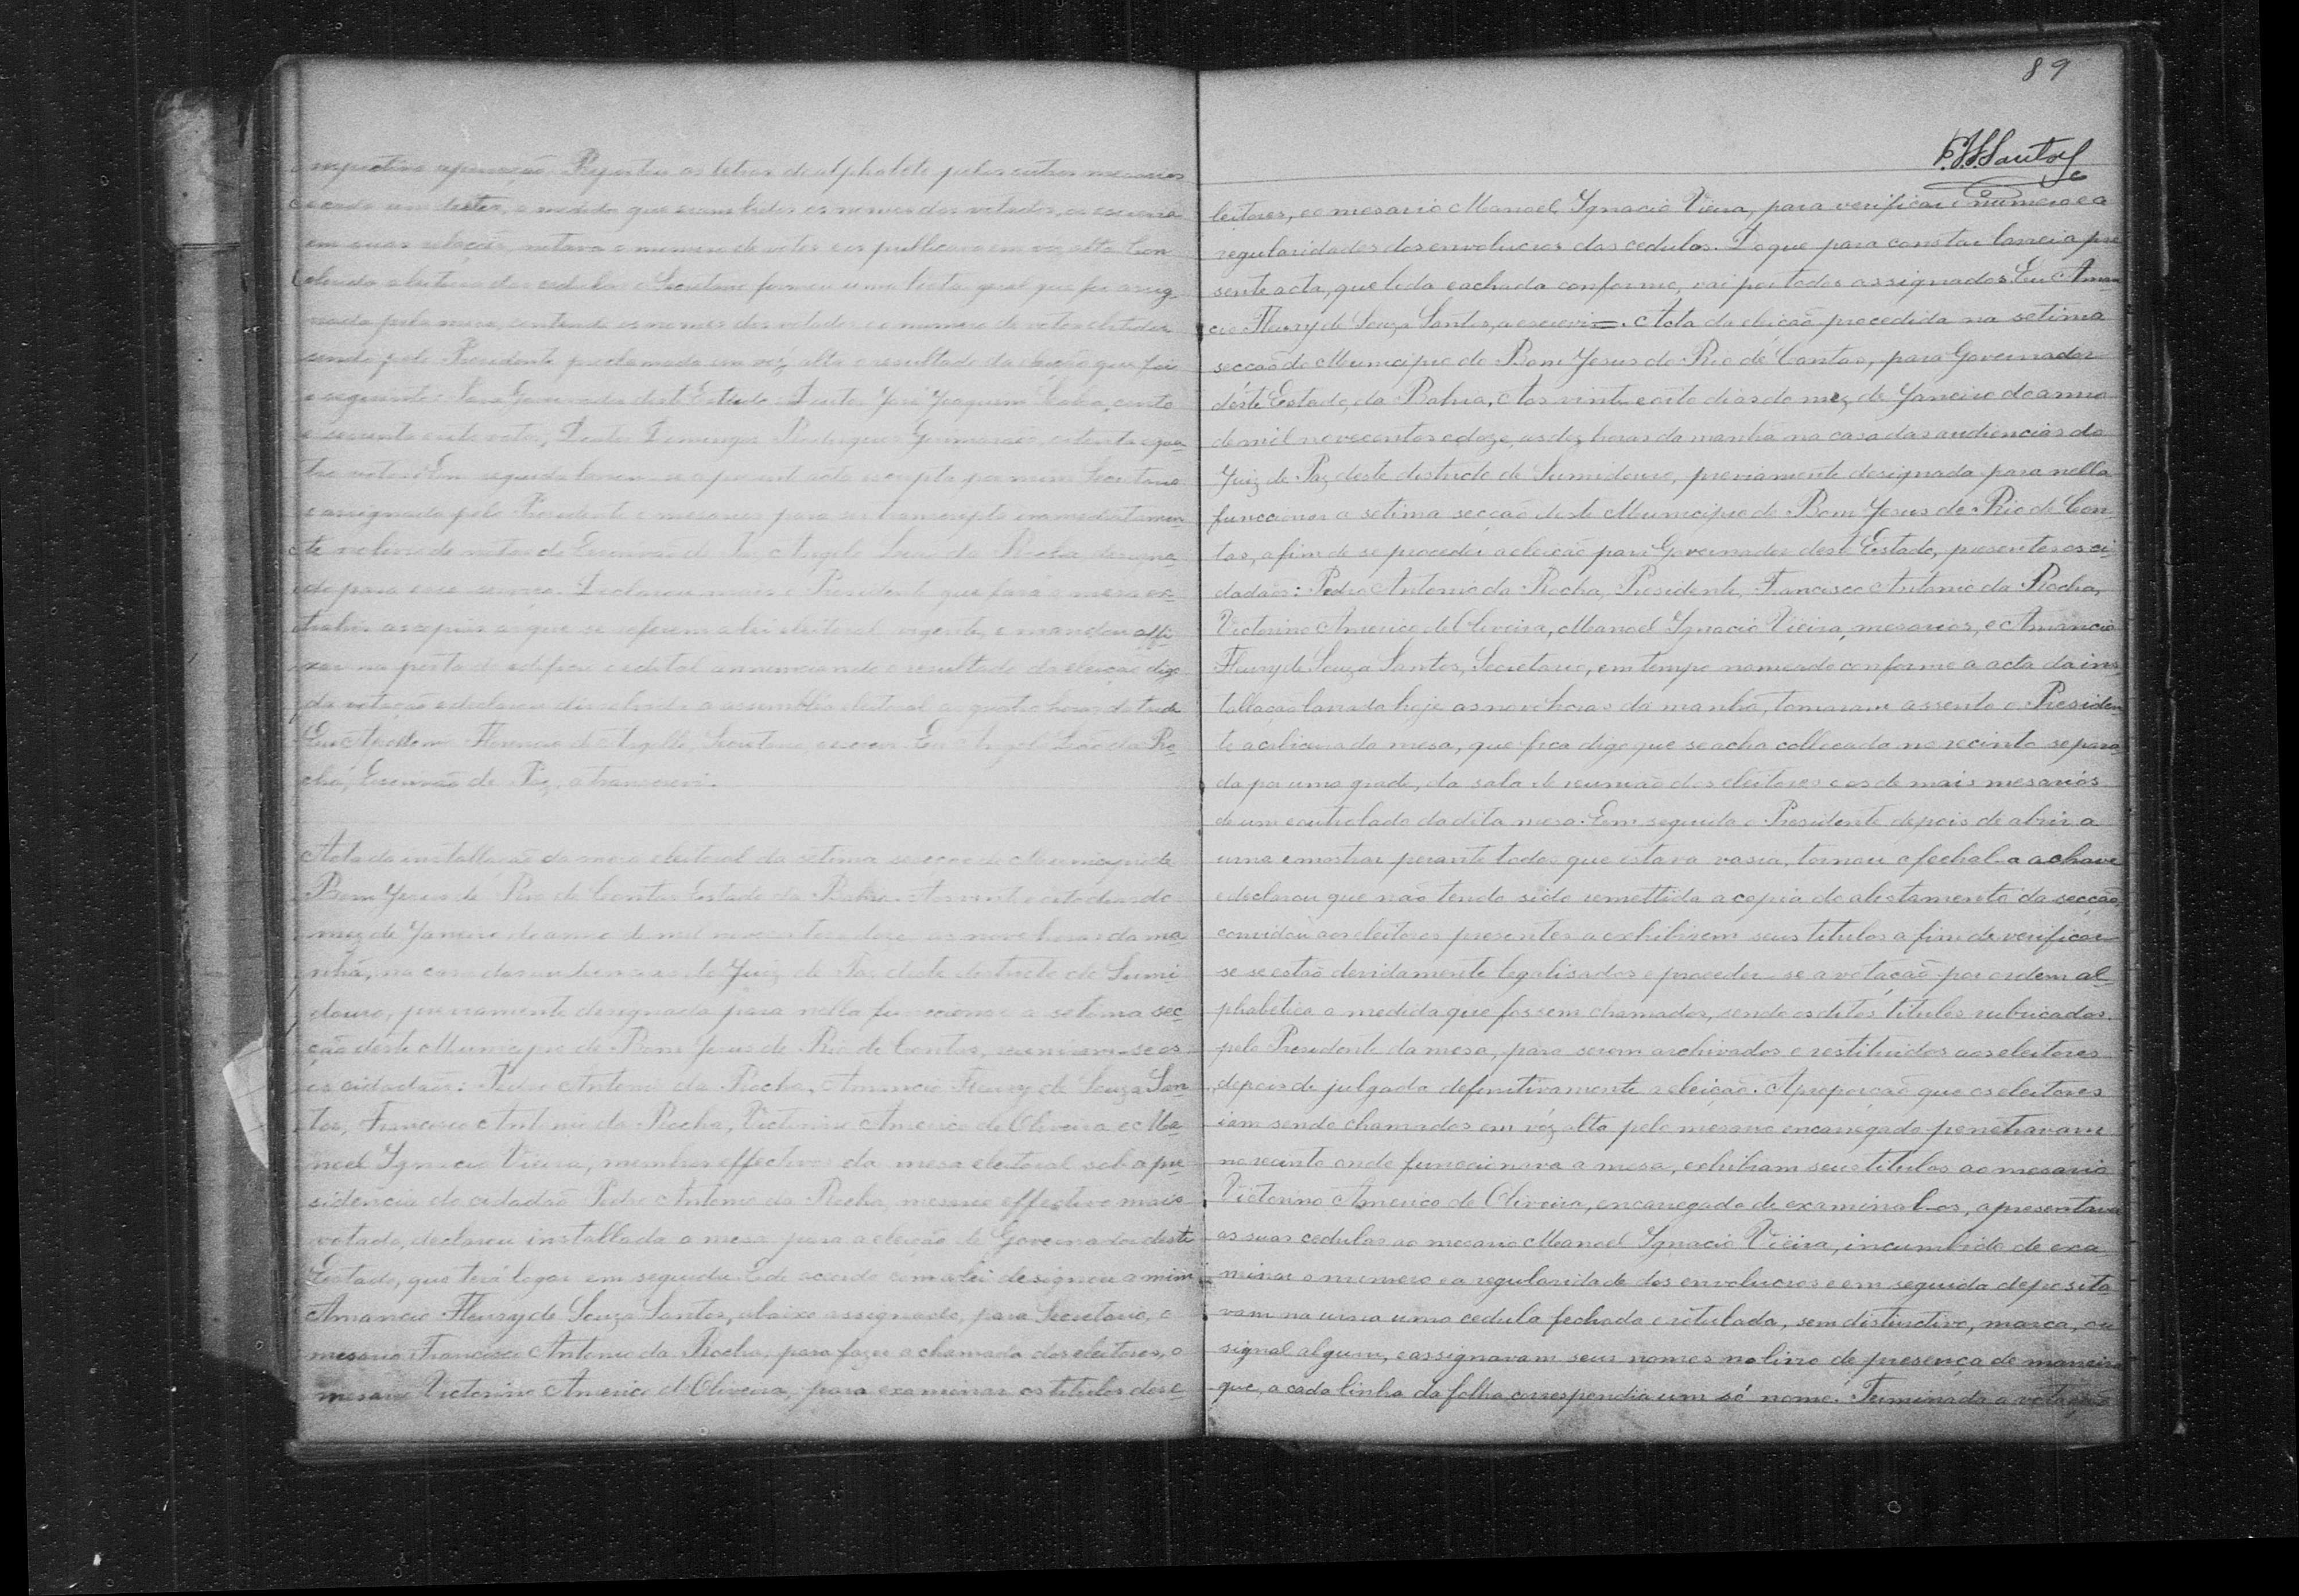 respectiva apuração. Repartiu as letras do alphabeto pelos outros mesarios
e cada um destes, a medida que eram lidos os nomes dos votados, os escrevia
em suas relações, notava o numero de votos e os publicava em voz alta. Con
cluida a leitura das cedulas o Secretario formou uma lista geral que foi assig
nada pela mesa, contendo os nomes dos votados e o numero de votos obtidos
sendo pelo Presidente proclamado em voz alta o resultado da eleição que foi
o seguinte: Para Governador deste Estado Doutor José Joaquim Seabra, cento
e sessenta e oito votos, Doutor Domingos Rodrigues Guimarães, setenta e qua
tro votos. Em seguida lavrou-se a presente acta escripta por mim Secretario
e assignada pelo Presidente e mesarios para ser transcripta immediatamen
te no livro de notas do Escrivão de Paz Angelo Leão da Rocha, designa
do para esse serviço. Declarou mais o Presidente que fará a mesa ex-
trahir as copias a que se refere a lei eleitoral vigente, e mandou affi
xar na porta do edificio o edital annunciando o resultado da eleição digo
da votação e declarou dissolvida a assembléa eleitoral as quatro horas da tarde
Eu Florencio de Argollo, Secretario, escrevi. Eu Angelo Leão da Ro
cha, Escrivão de Paz, a transcrevi.
Acta da installação da mesa eleitoral da setima secção do Municipio de
Bom Jesus do Rio de Contas Estado da Bahia. Aos vinte e oito dias do
mez de Janeiro do anno de mil novecentos e doze, as nove horas da ma
nhã, na casa das audiencias do Juiz de Paz deste districto de Sumi
douro, previamente designada para nella funccionar a setima sec
ção deste Municipio de Bom Jesus do Rio de Contas, reuniram-se os
os cidadãos: Pedro Antonio da Rocha, Amancio Fleury de Souza San
tos, Francisco Antonio da Rocha, Victorino Americo de Oliveira e Ma
noel Ignacio Vieira, membros effectivos da mesa eleitoral sob a pre
sidencia do cidadão Pedro Antonio da Rocha, mesario effectivo mais
votado, declarou installada a mesa para a eleição de Governador deste
Estado, que terá logar em seguida. E de accordo com a lei designou a mim
Amancio Fleury de Souza Santos, abaixo assignado, para Secretario, o
mesario Francisco Antonio da Rocha, para fazer a chamada dos eleitores, o
mesario Victorino Americo d'Oliveira, para examinar os titulos dos e
89
Santos
leitores, e o mesario Manoel Ignacio Vieira, para verificar o numero e a
regularidades dos envolucros das cedulas. Do que para constar lavrei a pre
sente acta, que lida e achada conforme, vai por todos assignados. Eu Aman
cio Fleury de Souza Santos, a escrevi =. Acta da eleição procedida na setima
secção do Municipio do Bom Jesus do Rio de Contas, para Governador
dêste Estado, da Bahia. Aos vinte e oito dias do mez de Janeiro do anno
de mil novecentos e doze, as dez horas da manhã na casa das audiencias do
Juiz de Paz deste districto de Sumidouro, previamente designada para nella
funccionar a setima secção deste Municipio do Bom Jesus do Rio de Con
tas, a fim de se proceder a eleição para Governador dest' Estado, presentes os ci-
dadãos: Pedro Antonio da Rocha, Presidente, Francisco Antonio da Rocha,
Victorino Americo de Oliveira, Manoel Ignacio Vieira, mesarios, e Amancio
Fleury de Souza Santos, Secretario, em tempo nomeado conforme a acta da ins
tallação lavrada hoje as nove horas da manhã, tomaram assento o Presiden
te a cabiceira da mesa, que fica digo que se acha collocada no recinto separa
da por uma grade, da sala de reunião dos eleitores e os de mais mesarios
de um e outro lado da dita mesa. Em seguida o Presidente depois de abrir a
urna e mostrar perante todos que estava vasia, tornou a fechal-a a chave
e declarou que não tendo sido remettida a copia do alistamento da secção,
convidou aos eleitores presentes a exhibirem seus titulos a fim de verificar
se se estão devidamente legalisados e proceder-se a votação por ordem al
phabetica a medida que fossem chamados, sendo os ditos titulos rubricados
pelo Presidente da mesa, para serem archivados e restituidos aos eleitores
depois de julgada definitivamente a eleição. A proporção que os eleitores
iam sendo chamados em vóz alta pelo mesario encarregado penetravam
no recinto onde funccionava a mesa, exhibiam seus titulos ao mesario
Victorino Americo de Oliveira, encarregado de examinal-os, apresentava
as suas cedulas ao mesario Manoel Ignacio Vieira, incumbido de exa
minar o numero e a regularidade dos envolucros e em seguida deposita
vam na urna uma cedula fechada e rotulada, sem distinctivo, marca, ou
signal algum, e assignavam seus nomes no livro de presença de maneira
que, a cada linha da folha correspondia um só nome. Terminada a votação